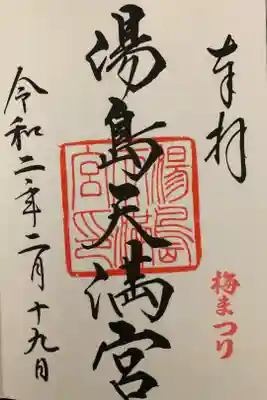 奉拝
梅まつり
湯島天満宮
湯島天満宮印
令和二年二月十九日